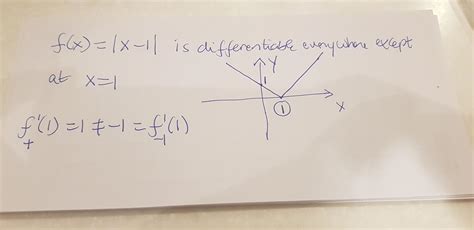 f(x) = |x-1| is differentiable everywhere except
at x=1
Y
1
1
X
f'₊(1) = 1 ≠ -1 = f'₋₁(1)